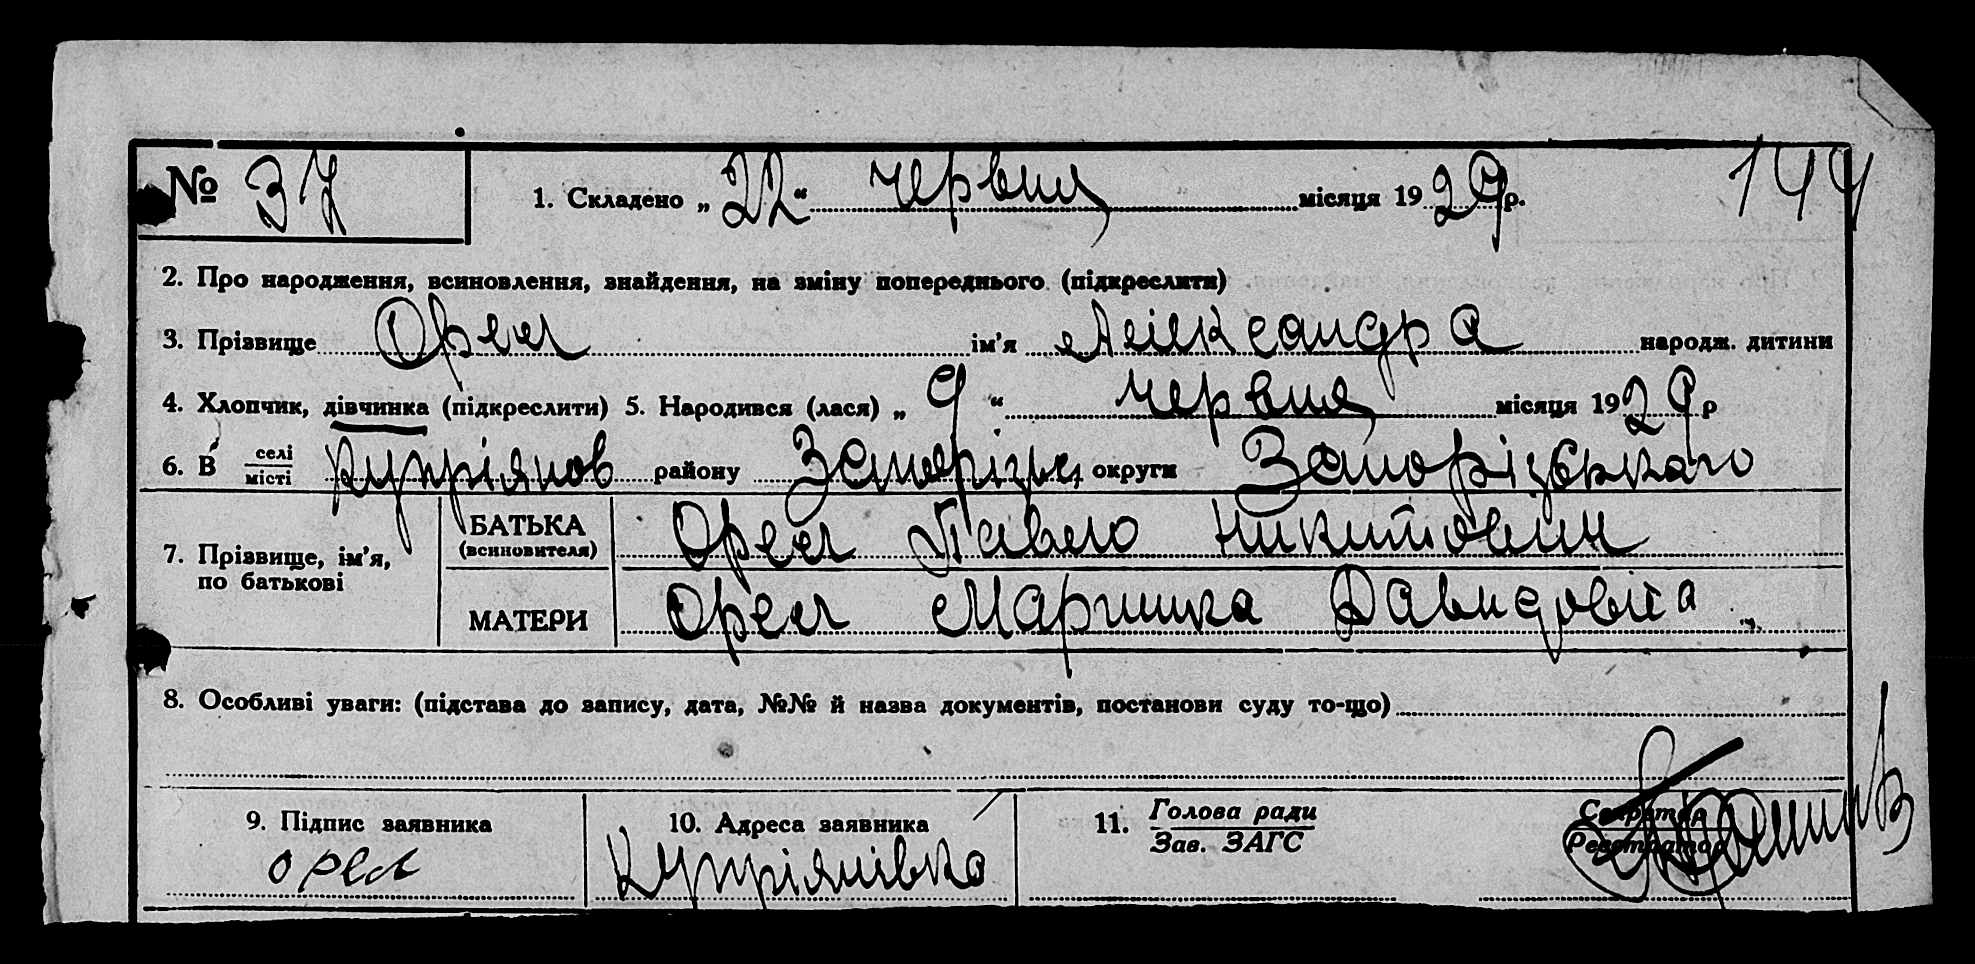 № 37 1. Складено „22“ червня місяця 1929 р. 144
2. Про народження, всиновлення, знайдення, на зміну попереднього (підкреслити)
3. Прізвище Орел ім'я Александра народж. дитини
4. Хлопчик, дівчинка (підкреслити) 5. Народився (лася) „9“ червня місяця 1929 р
6. В селі / місті Купріянов району Запорізьк округи Запорізького
7. Прізвище, ім'я, по батькові
БАТЬКА (всиновителя) Орел Павло Никитович
МАТЕРИ Орел Маришка Давидовна
8. Особливі уваги: (підстава до запису, дата, №№ й назва документів, постанови суду то-що)
9. Підпис заявника 10. Адреса заявника 11. Голова ради / Зав. ЗАГС Секретар / Реєстратор
орел Купріянівка